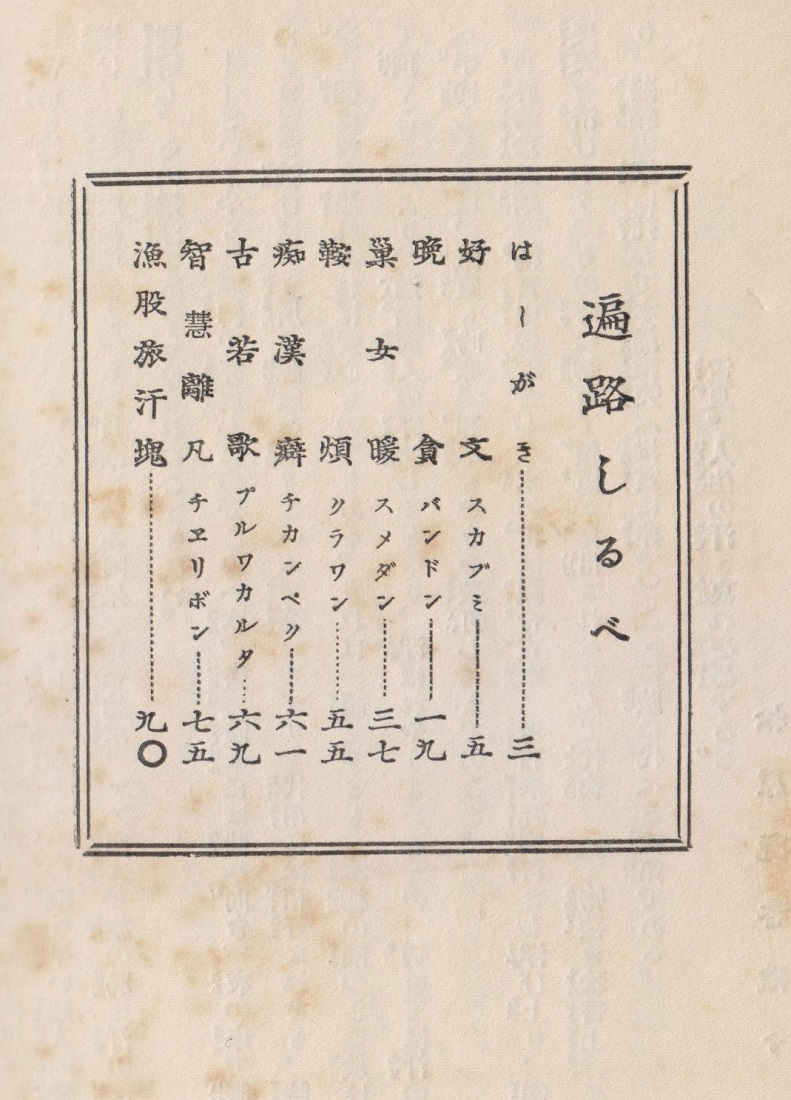 遍路しるべ
はしがき……三
好文 スカブミ……五
晩食 バンドン……一九
巣女暖 スメダン……三七
鞍煩 クラワン……五五
痴漢癖 チカンペク……六一
古若歌 プルワカルタ……六九
智慧離凡 チヱリボン……七五
漁股旅汗塊……九〇